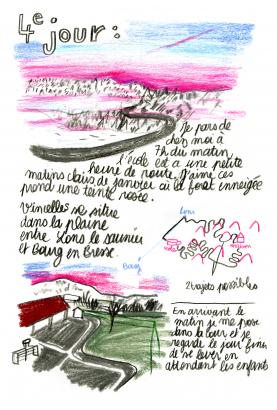 4e jour :
Je pars de
chez moi à
7h du matin,
l'école est à une petite
heure de route. J'aime ces
matins clairs de janvier où la forêt enneigée
prend une teinte rosée.
Vincelles se situe
dans la plaine
entre Lons le saunier
et Bourg en Bresse.
Lons
école
maison
Bourg
2 trajets possibles
En arrivant le
matin je me pose
dans la cour et je
regarde le jour finir
de se lever en
attendant les enfants